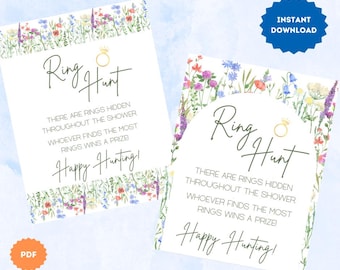 INSTANT
DOWNLOAD
Ring
Hunt
THERE ARE RINGS HIDDEN
THROUGHOUT THE SHOWER
WHOEVER FINDS THE MOST
RINGS WINS A PRIZE!
Happy Hunting!
Ring
Hunt
THERE ARE RINGS HIDDEN
THROUGHOUT THE SHOWER
WHOEVER FINDS THE MOST
RINGS WINS A PRIZE!
Happy Hunting!
PDF